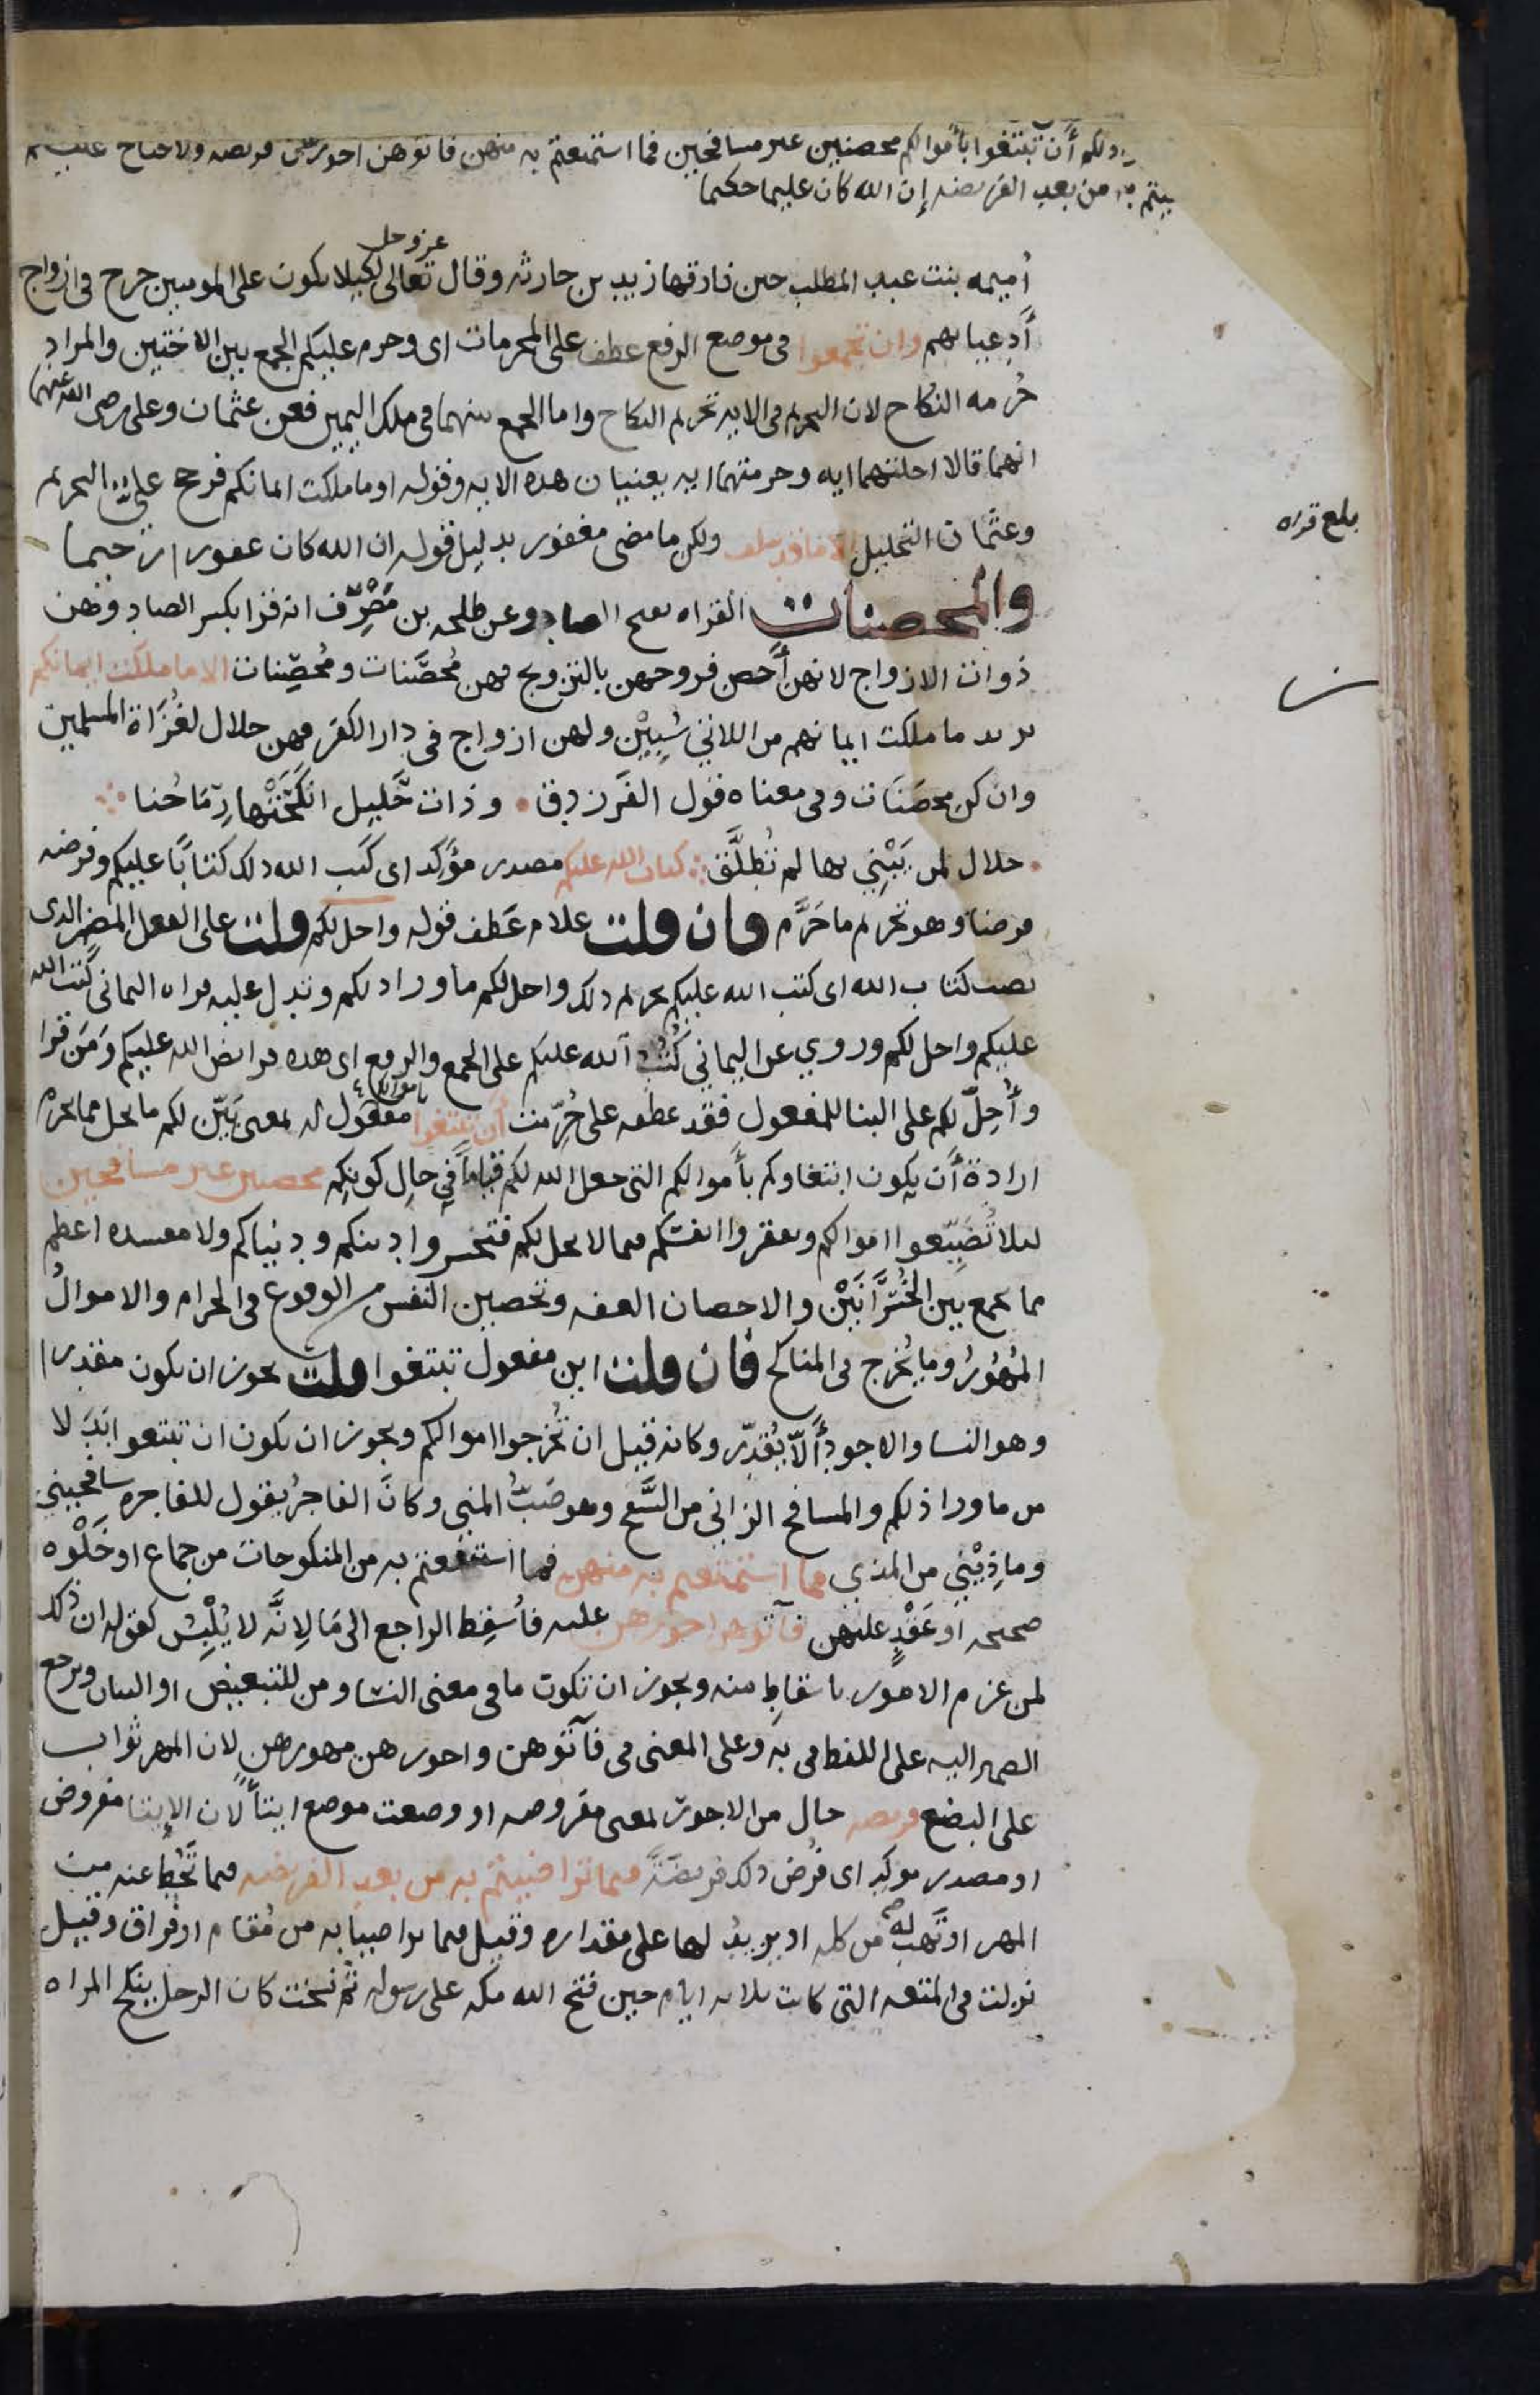 ذلكم أن تبتغوا بأموالكم محصنين غير مسافحين فما استمتعتم به منهن فاتوهن اجورهن فريضه ولا جناح عليكم
به من بعد الفريضه إن الله كان عليما حكيما
أميمه بنت عبد المطلب حين فارقها زيد بن حارثه وقال عز وجل تعالى لكيلا يكون على المومنين حرج في ازواج
أدعيايهم وان تجمعوا في موضع الرفع عطف على المحرمات اى وحرم عليكم الجمع بين الاختين والمراد
حرمه النكاح لان التحريم في الايه تحريم النكاح واما الجمع بينهما في ملك اليمين فعن عثمان وعلى رضى الله عنهما
انهما قالا احلتهما ايه وحرمتهما ايه يعنيان هذه الايه وقوله او ما ملكت ايمانكم فرجح علي التحريم
بلغ قراه
وعثمان التحليل الا ما قد سلف ولكن ما مضى مغفور بدليل قوله ان الله كان غفورا رحيما
والمحصنات القراه بفتح الصاد وعن طلحه بن مصرف انه قرا بكسر الصاد وهن
ذوات الازواج لانهن أحصن فروجهن بالتزويج فهن محصنات ومحصنات الا ما ملكت ايمانكم
يريد ما ملكت ايمانهم من اللاتي سبين ولهن ازواج في دار الكفر فهن حلال لغزاة المسلمين
وان كن محصنات وفي معناه قول الفرزدق وذات حليل انكحتها رماحنا
حلال لمن يبني بها لم تطلق كتاب الله عليكم مصدر مؤكد اى كتب الله ذلك كتابا عليكم وفرضه
فرضا وهو تحريم ما حرم فان قلت علام عطف قوله واحل لكم قلت على الفعل المضمر الذى
نصب كتاب الله اى كتب الله عليكم تحريم ذلك واحل لكم ما وراء ذلكم وتدل عليه قراه اليماني كتب الله
عليكم واحل لكم وروي عن اليماني كتب الله عليكم على الجمع والرفع اى هذه فرائض الله عليكم ومن قرا
وأحل لكم على البنا للمفعول فقد عطفه على حرمت أن تبتغوا باموالكم مفعول له بمعنى بين لكم ما يحل مما يحرم
ارادة أن يكون ابتغاوكم بأموالكم التي جعل الله لكم قياما في حال كونكم محصنين غير مسافحين
ليلا تضيعوا اموالكم وتفقروا انفسكم فيما لا يحل لكم فتخسروا دينكم ودنياكم ولا مفسده اعظم
مما يجمع بين الخسرانين والاحصان العفه وتحصين النفس من الوقوع في الحرام والاموال
المهور وما يخرج في المناكح فان قلت اين مفعول تبتغوا قلت يجوز ان يكون مقدرا
وهو النسا والاجود ألا يقدر وكانه قيل ان تخرجوا اموالكم ويجوز ان يكون ان تبتغوا بدلا
من ما ورا ذلكم والمسافح الزاني من السفح وهو صب المني وكان الفاجر يقول للفاجره سافحيني
وماذيني من المذي فما استمتعتم به منهن فما استنفعتم به من المنكوحات من جماع او خلوه
صحيحه او عقد عليهن فآتوهن اجورهن عليه فأسقط الراجع الى ما لانه لا يلبس كقوله ان ذلك
لمن عزم الامور باسقاط منه ويجوز ان تكون ما في معنى النسا ومن للتبعيض او البيان ويرجع
الضمير اليه على اللفظ في به وعلى المعنى في فآتوهن واجورهن مهورهن لان المهر ثواب
على البضع فريضه حال من الاجور بمعنى مفروضه او وضعت موضع ايتاء لان الايتا مفروض
او مصدر موكد اى فرض ذلك فريضة فيما تراضيتم به من بعد الفريضه فيما تحط عنه من
المهر او تهب له من كله او يزيد لها على مقداره وقيل فيما تراضيا به من مقام او فراق وقيل
نزلت في المتعه التي كانت ثلاثه ايام حين فتح الله مكه على رسوله ثم نسخت كان الرجل ينكح المراه